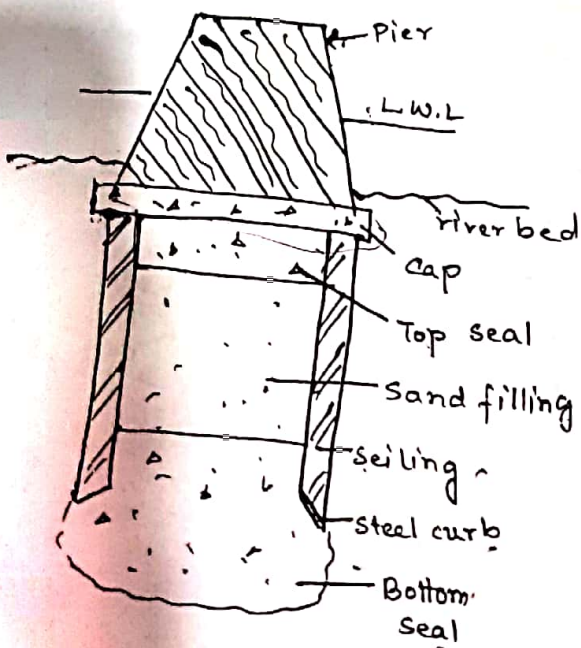 Pier
L.W.L
river bed
cap
Top seal
Sand filling
Seiling
Steel curb
Bottom
seal